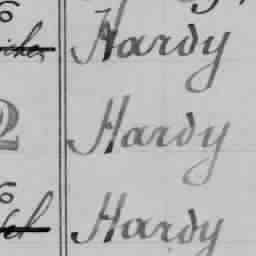 Hardy
2 Hardy
Hardy